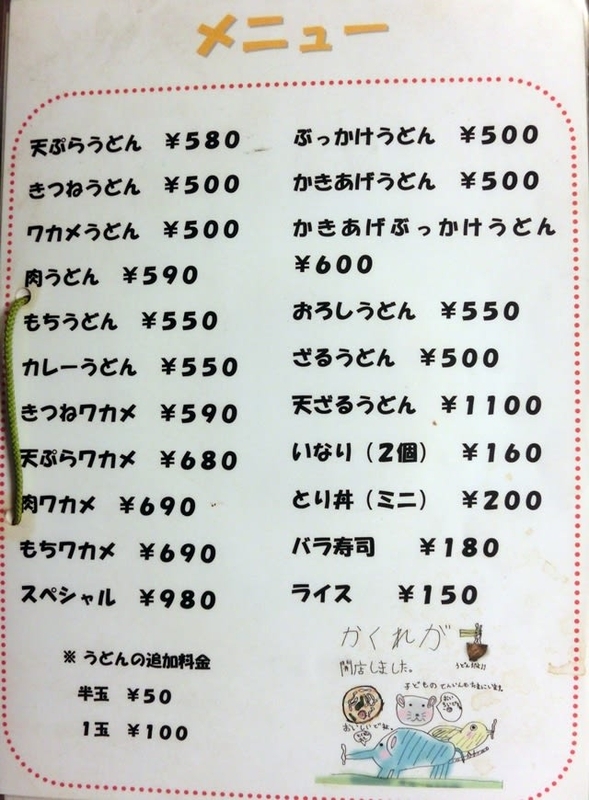 メニュー
天ぷらうどん ¥580
きつねうどん ¥500
ワカメうどん ¥500
肉うどん ¥590
もちうどん ¥550
カレーうどん ¥550
きつねワカメ ¥590
天ぷらワカメ ¥680
肉ワカメ ¥690
もちワカメ ¥690
スペシャル ¥980
※ うどんの追加料金
半玉 ¥50
1玉 ¥100
ぶっかけうどん ¥500
かきあげうどん ¥500
かきあげぶっかけうどん
¥600
おろしうどん ¥550
ざるうどん ¥500
天ざるうどん ¥1100
いなり（2個） ¥160
とり丼（ミニ） ¥200
バラ寿司 ¥180
ライス ¥150
かくれが
開店しました。